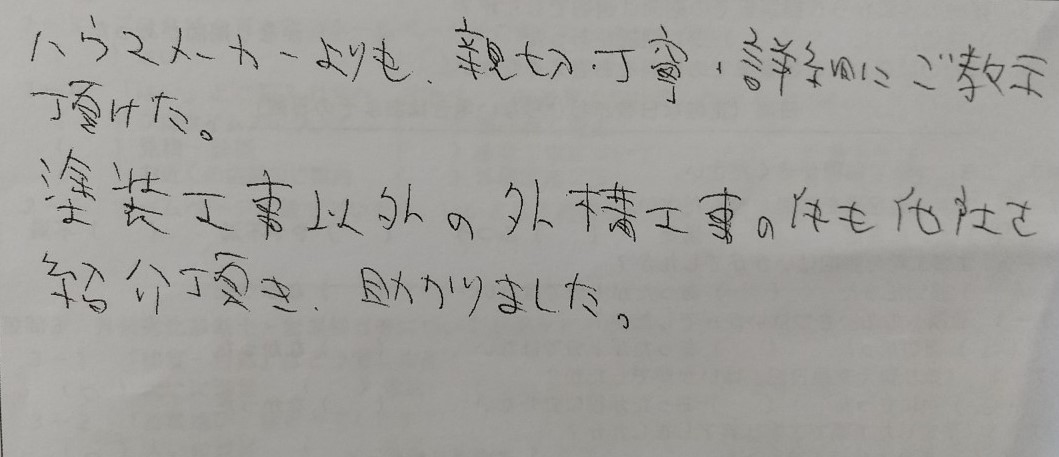 ハウスメーカーよりも、親切・丁寧・詳細にご教示
頂けた。
塗装工事以外の外構工事の件も他社さ
紹介頂き、助かりました。